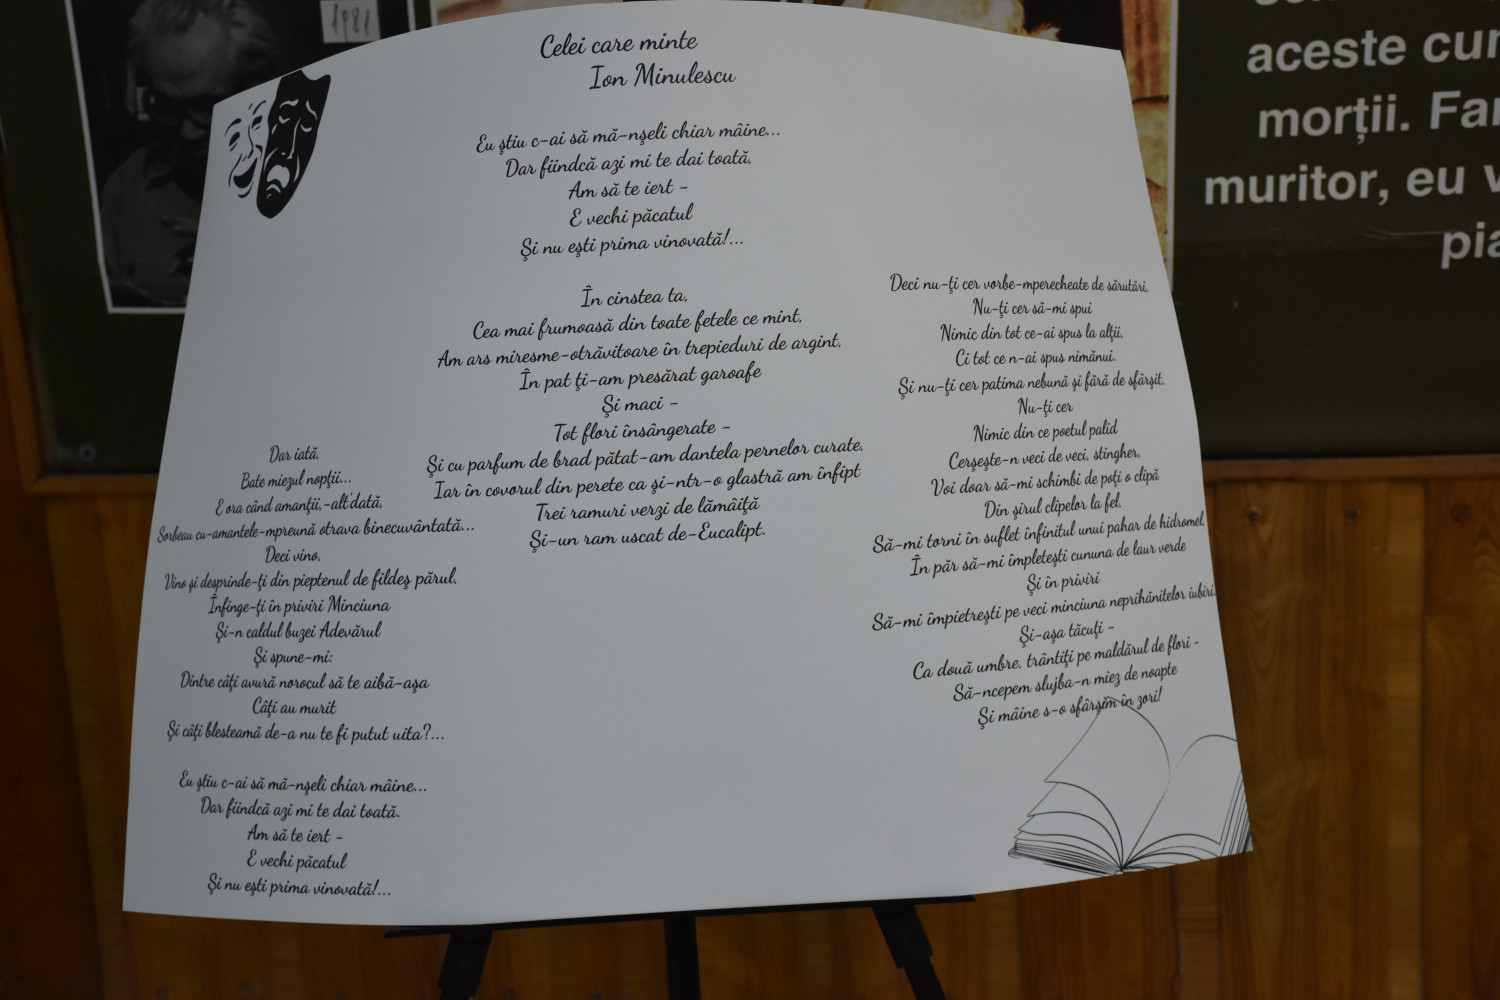 Celei care minte
Ion Minulescu
Eu ştiu c-ai să mă-nşeli chiar mâine...
Dar fiindcă azi mi te dai toată,
Am să te iert -
E vechi păcatul
Şi nu eşti prima vinovată!...
În cinstea ta,
Cea mai frumoasă din toate fetele ce mint,
Am ars miresme-otrăvitoare în trepieduri de argint,
În pat ţi-am presărat garoafe
Şi maci -
Tot flori însângerate -
Şi cu parfum de brad pătat-am dantela pernelor curate,
Iar în covorul din perete ca şi-ntr-o glastră am înfipt
Trei ramuri verzi de lămâiţă
Şi-un ram uscat de-Eucalipt.
Dar iată,
Bate miezul nopţii...
E ora când amanţii,-alt'dată,
Sorbeau cu-amantele-mpreună otrava binecuvântată...
Deci vino,
Vino şi desprinde-ţi din pieptenul de fildeş părul,
Înfinge-ţi în priviri Minciuna
Şi-n caldul buzei Adevărul
Şi spune-mi:
Dintre câţi avură norocul să te aibă-aşa
Câţi au murit
Şi câţi blesteamă de-a nu te fi putut uita?...
Eu ştiu c-ai să mă-nşeli chiar mâine...
Dar fiindcă azi mi te dai toată.
Am să te iert -
E vechi păcatul
Şi nu eşti prima vinovată!...
Deci nu-ţi cer vorbe-mperecheate de sărutări,
Nu-ţi cer să-mi spui
Nimic din tot ce-ai spus la alţii,
Ci tot ce n-ai spus nimănui.
Şi nu-ţi cer patima nebună şi fără de sfârşit,
Nu-ţi cer
Nimic din ce poetul palid
Cerşeşte-n veci de veci, stingher,
Voi doar să-mi schimbi de poţi o clipă
Din şirul clipelor la fel,
Să-mi torni în suflet infinitul unui pahar de hidromel,
În păr să-mi împleteşti cununa de laur verde
Şi în priviri
Să-mi împietreşti pe veci minciuna neprihănitelor iubiri.
Şi-aşa tăcuţi -
Ca două umbre, trântiţi pe maldărul de flori -
Să-ncepem slujba-n miez de noapte
Şi mâine s-o sfârşim în zori!
1981
aceste cu
morții. Fa
muritor, eu v
pia